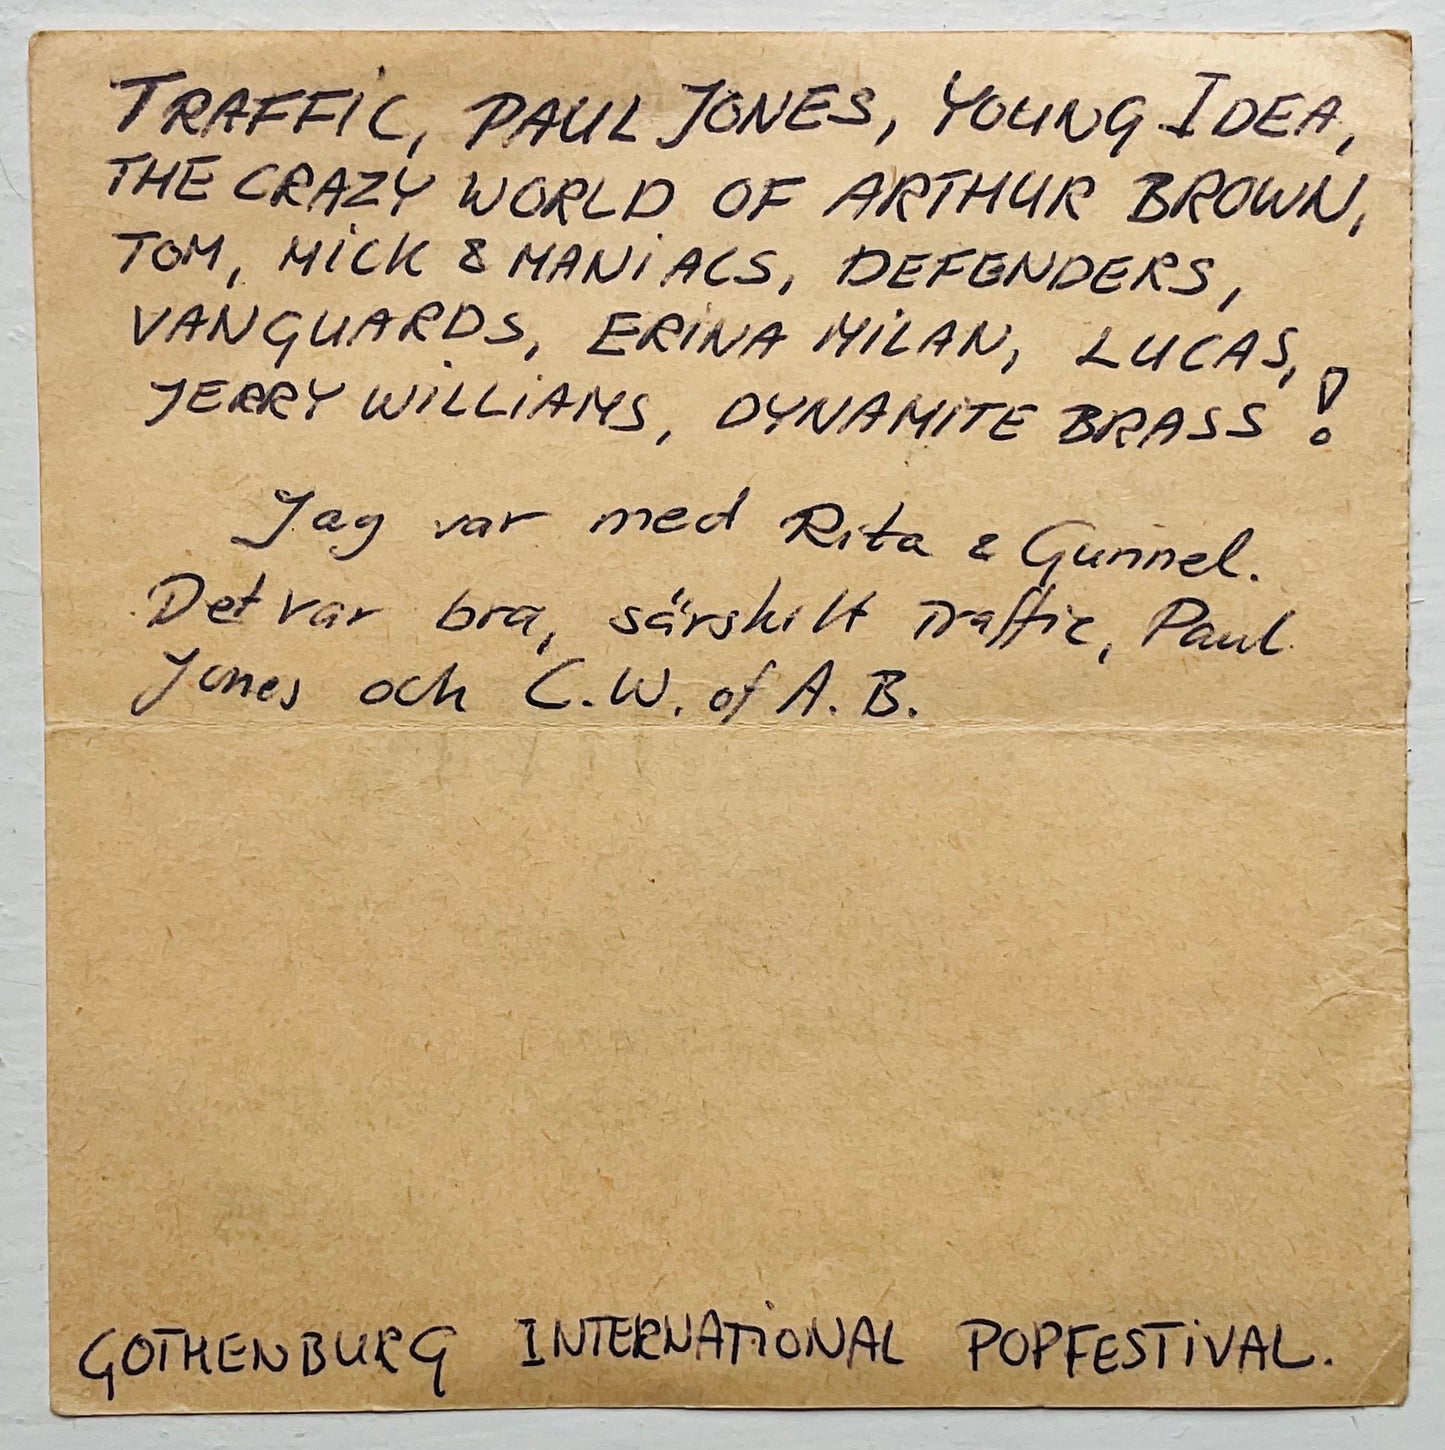 TRAFFIC, PAUL JONES, YOUNG IDEA,
THE CRAZY WORLD OF ARTHUR BROWN,
TOM, MICK & MANIACS, DEFENDERS,
VANGUARDS, ERINA MILAN, LUCAS,
JERRY WILLIAMS, DYNAMITE BRASS!
Jag var med Rita & Gunnel.
Det var bra, särskilt Traffic, Paul
Jones och C.W. of A.B.
GOTHENBURG INTERNATIONAL POPFESTIVAL.